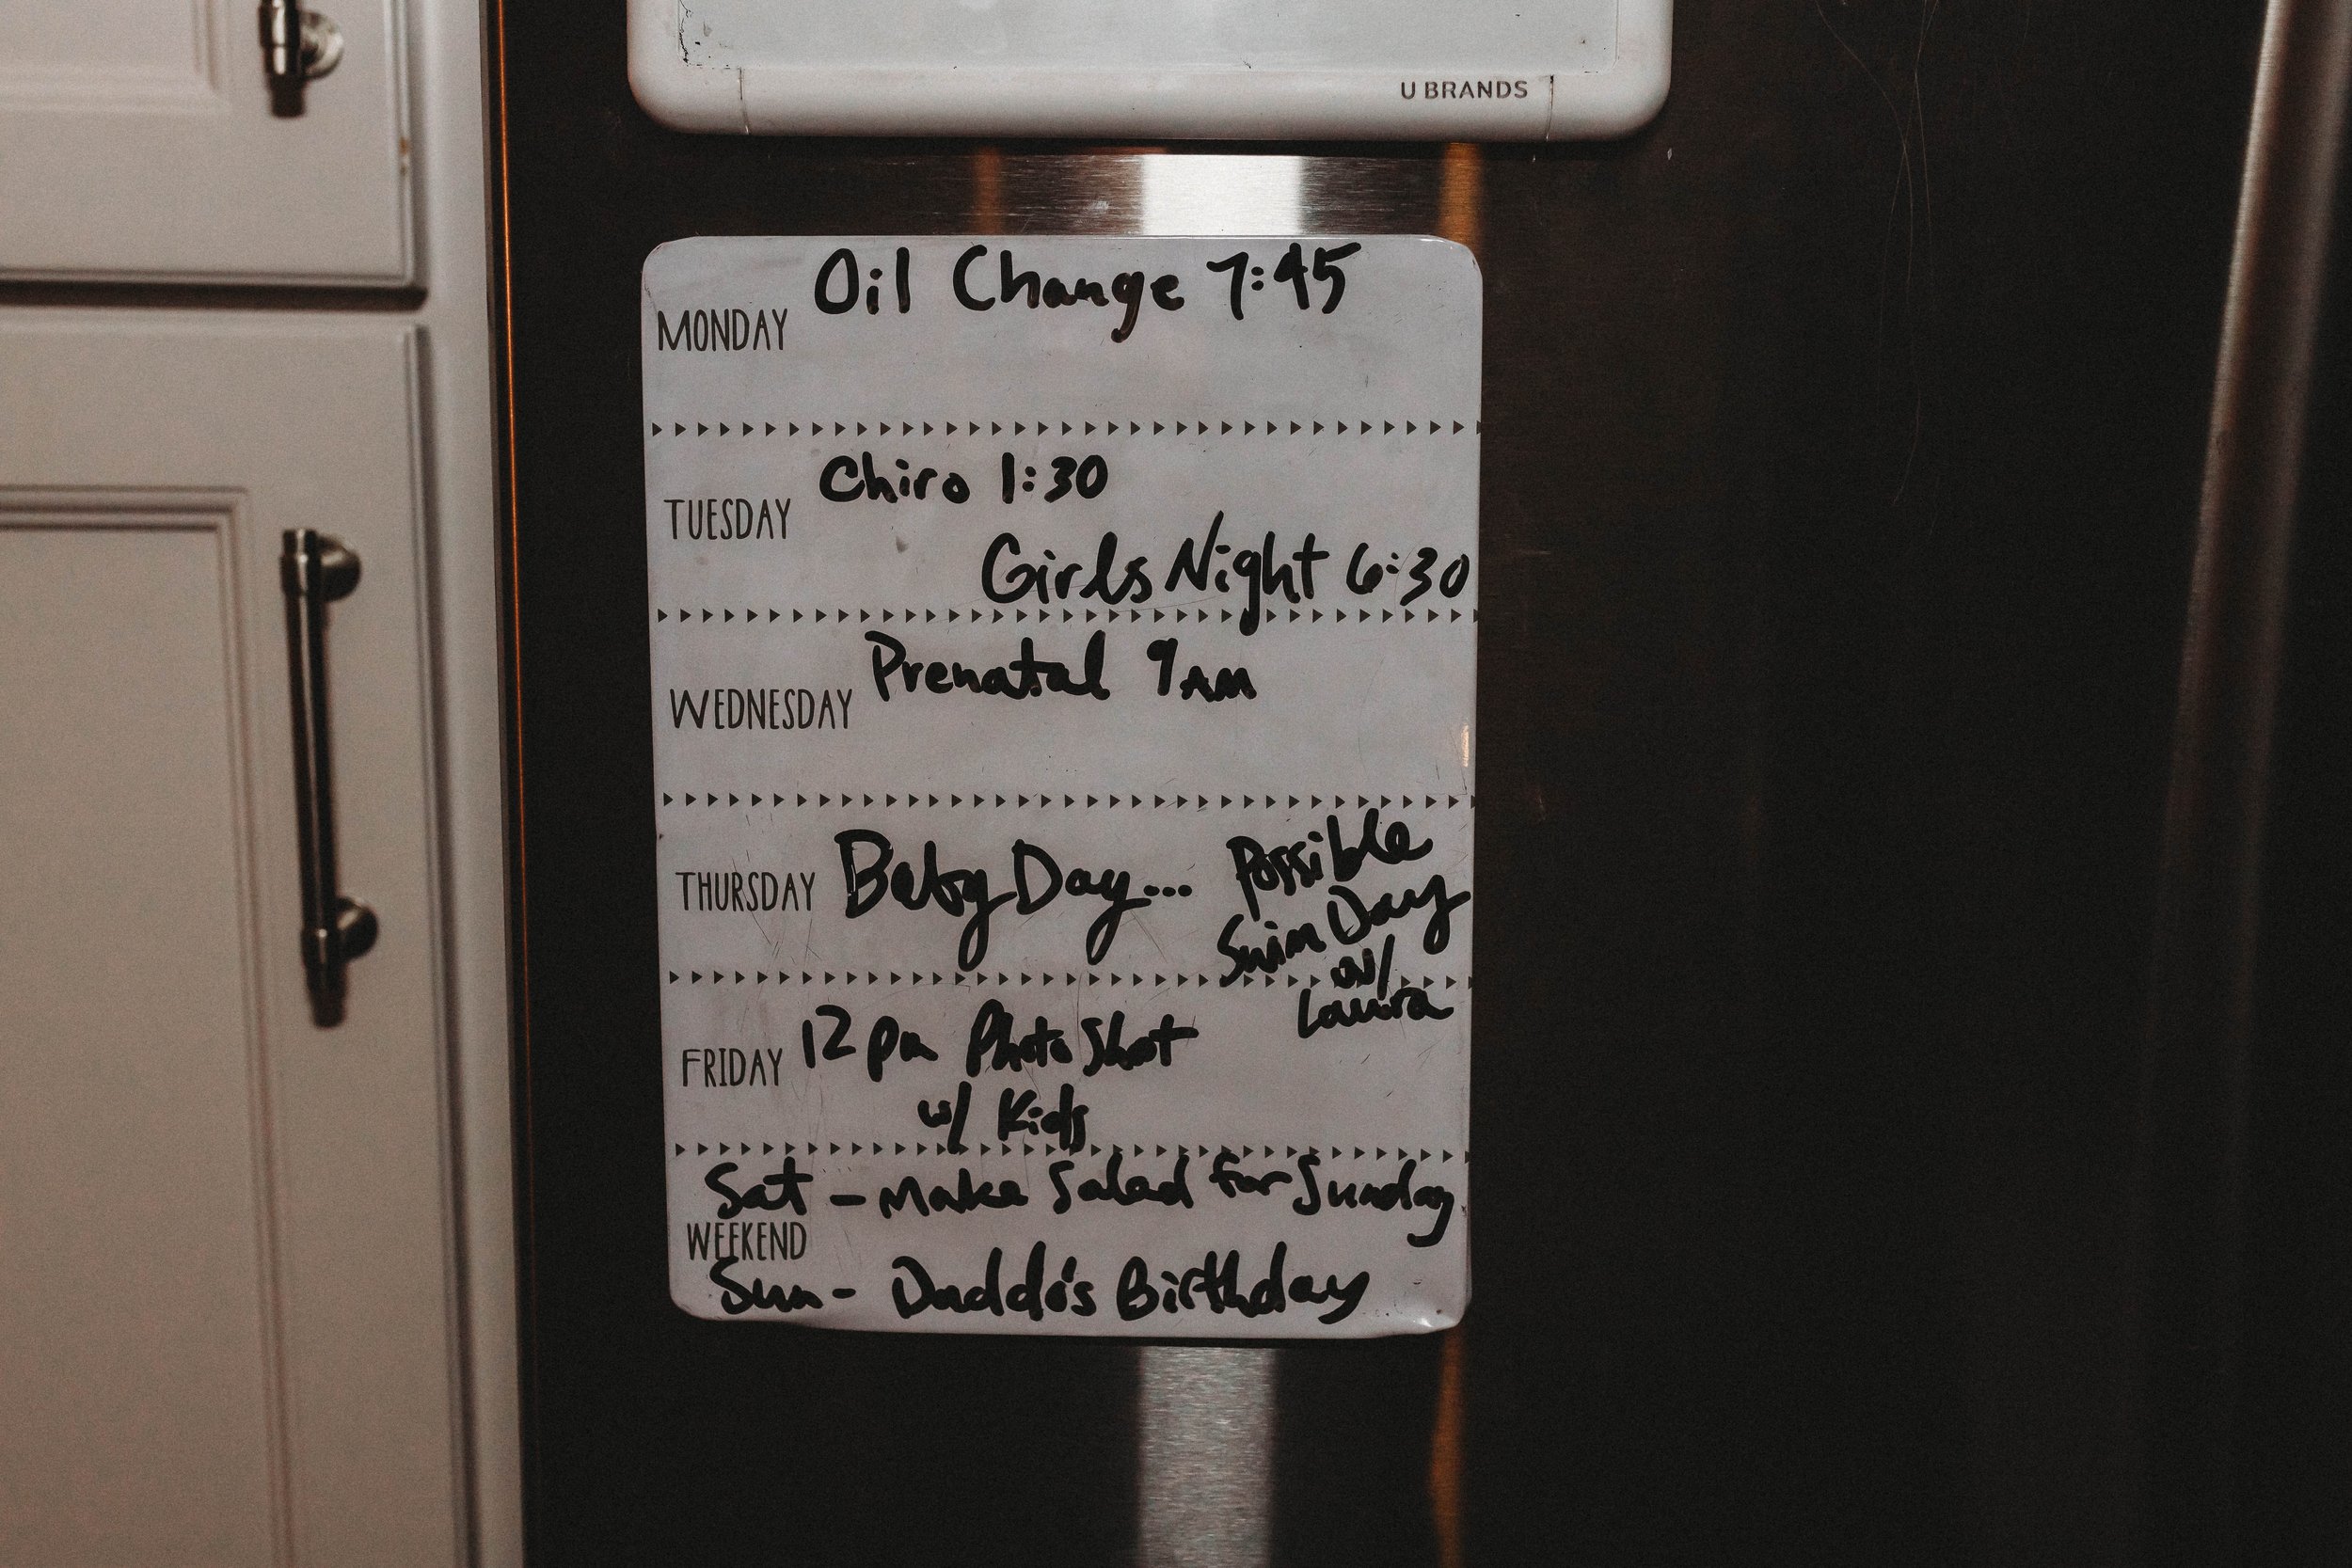 U BRANDS
MONDAY Oil Change 7:45
TUESDAY Chiro 1:30
Girls Night 6:30
WEDNESDAY Prenatal 9AM
THURSDAY Baby Day...
Possible
Swim Day
w/
Laura
FRIDAY 12pm Photo Shot
w/ Kids
Sat - Make Salad for Sunday
WEEKEND
Sun - Daddo's Birthday